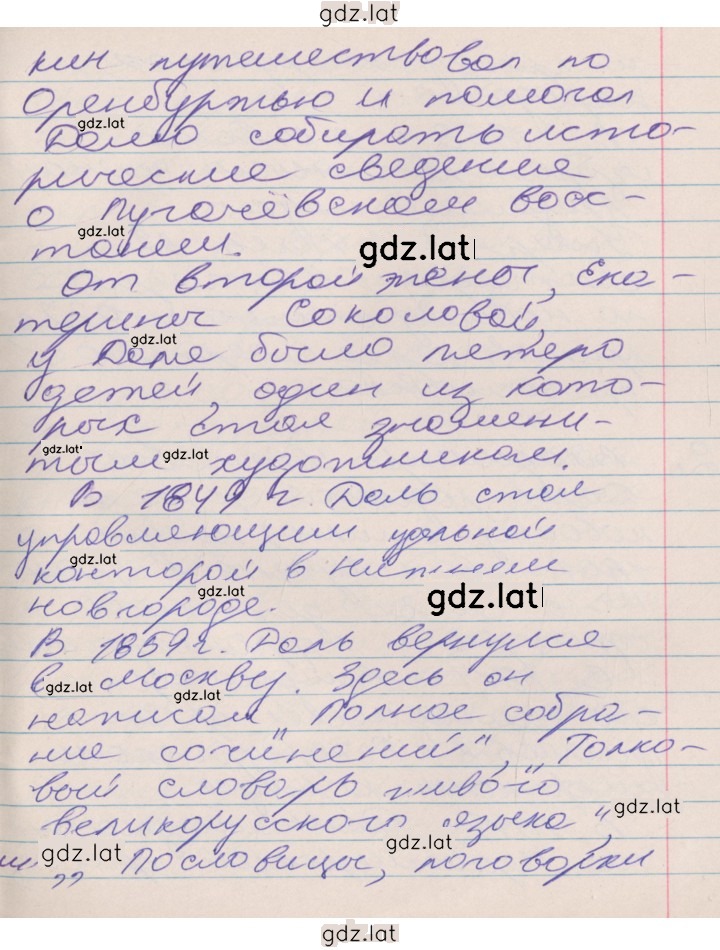 gdz.lat
кин путешествовал по
Оренбуржью и помогал
gdz.lat
Далю собирать исто-
рические сведения
о Пугачёвском восс-
gdz.lat
тании.
gdz.lat
От второй жены, Ека-
терины Соколовой,
gdz.lat
у Даля было пятеро
детей, один из кото-
рых стал знамени-
gdz.lat gdz.lat
тым художником.
В 1849 г. Даль стал
управляющим удельной
gdz.lat
конторой в Нижнем
gdz.lat gdz.lat
новгороде.
В 1859 г. Даль вернулся
в Москву. Здесь он
gdz.lat gdz.lat
написал „Полное собра-
ние сочинений", „Толко-
вый словарь живого
великорусского языка",
gdz.lat gdz.lat gdz.lat
„Пословицы, поговорки
gdz.lat